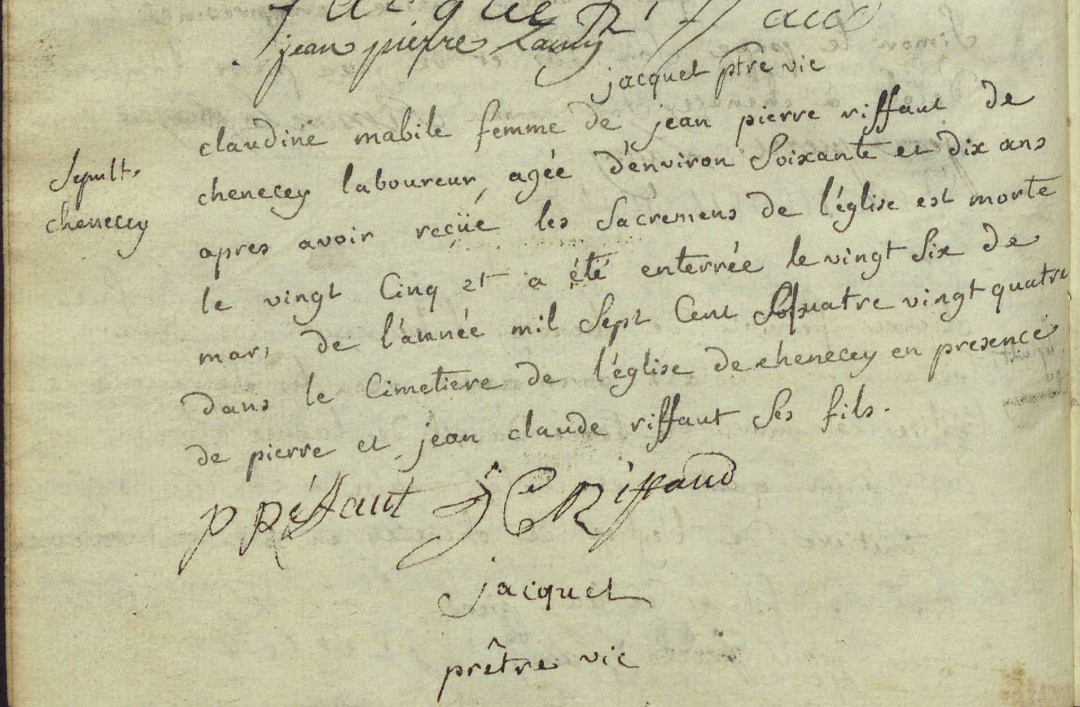 jean pierre Lamy
jacquet ptre vic
Sepult.
chenecey
claudine mabile femme de jean pierre riffaut de
chenecey laboureur, agée d'environ Soixante et dix ans
apres avoir reçüe les Sacremens de l'église est morte
le vingt Cinq et a été enterrée le vingt Six de
mars de l'année mil Sept Cent quatre vingt quatre
dans le Cimetiere de l'église de chenecey en presence
de pierre et jean claude riffaut Ses fils.
p Riffaut J C Riffaud
jacquet
prêtre vic